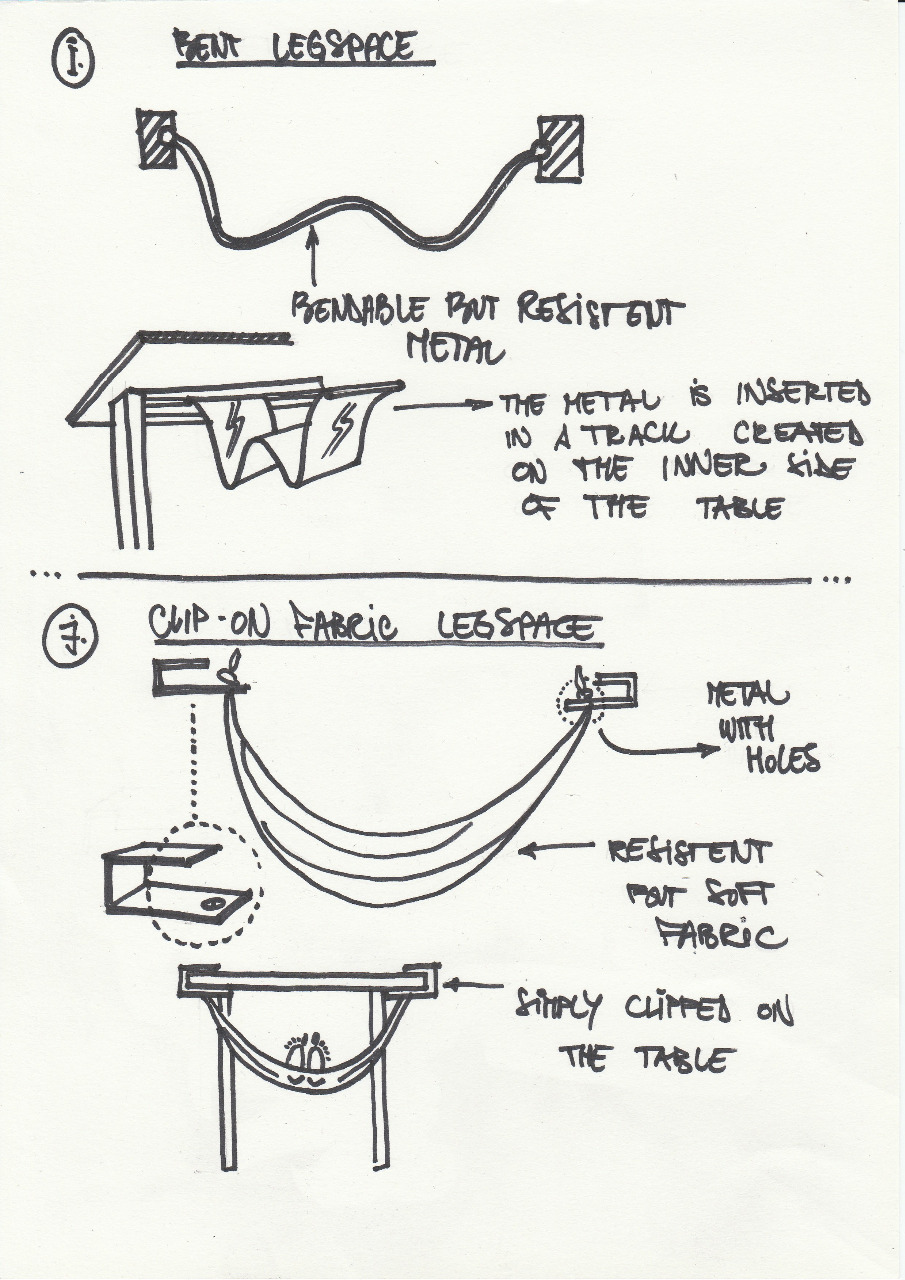 I.
BENT LEGSPACE
BENDABLE BUT RESISTENT
METAL
THE METAL iS INSERTED
IN A TRACK CREATED
ON THE INNER SiDE
OF THE TABLE
... ...
J.
CLIP-ON FABRiC LEGSPACE
METAL
WITH
HOLES
RESiSTENT
BUT SOFT
FABRiC
SiMPLY CLIPPED ON
THE TABLE